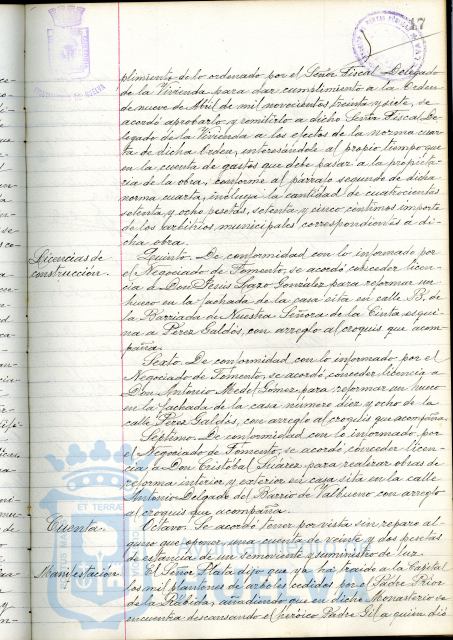 17
plimiento de lo ordenado por el Señor Fiscal Delegado
de la Vivienda para dar cumplimiento a la Orden
de nueve de Abril de mil novecientos treinta y siete, se
acordó aprobarlo y remitirlo a dicho Señor Fiscal De-
legado de la Vivienda a los efectos de la norma cuar-
ta de dicha Orden, interesándole al propio tiempo que
en la cuenta de gastos que debe pasar a la propieta-
ria de la obra, conforme al párrafo segundo de dicha
norma cuarta, incluya la cantidad de cuatrocientas
setenta y ocho pesetas, setenta y cinco céntimos importe
de los arbitrios municipales correspondientes a di-
cha obra.
Licencias de
construcción.
Quinto. De conformidad con lo informado por
el Negociado de Fomento, se acordó conceder licen-
cia a Don Jesús Lazo González para reformar un
hueco en la fachada de la casa sita en calle B. de
la Barriada de Nuestra Señora de la Cinta esqui-
na a Pérez Galdós, con arreglo al croquis que acom-
paña.
Sexto. De conformidad con lo informado por el
Negociado de Fomento, se acordó conceder licencia a
Don Antonio Medel Gómez para reformar un hueco
en la fachada de la casa número diez y ocho de la
calle Pérez Galdós, con arreglo al croquis que acompaña.
Séptimo. De conformidad con lo informado por
el Negociado de Fomento, se acordó conceder licen-
cia a Don Cristóbal Suárez para realizar obras de
reforma interior y exterior en casa sita en la calle
Antonio Delgado del Barrio de Valbueno con arreglo
al croquis que acompaña.
Cuenta.
Octavo. Se acordó tener por vista sin reparo al-
guno que oponer, una cuenta de veinte y dos pesetas
de estancia de un semoviente y suministro de luz.
Manifestación.
El Señor Plata dijo que ya ha traído a la Capital
los mil plantones de árboles cedidos por el Padre Prior
de la Rábida, añadiendo que en dicho Monasterio se
encuentra descansando el heróico Padre Gil a quién dió
ET TERRA